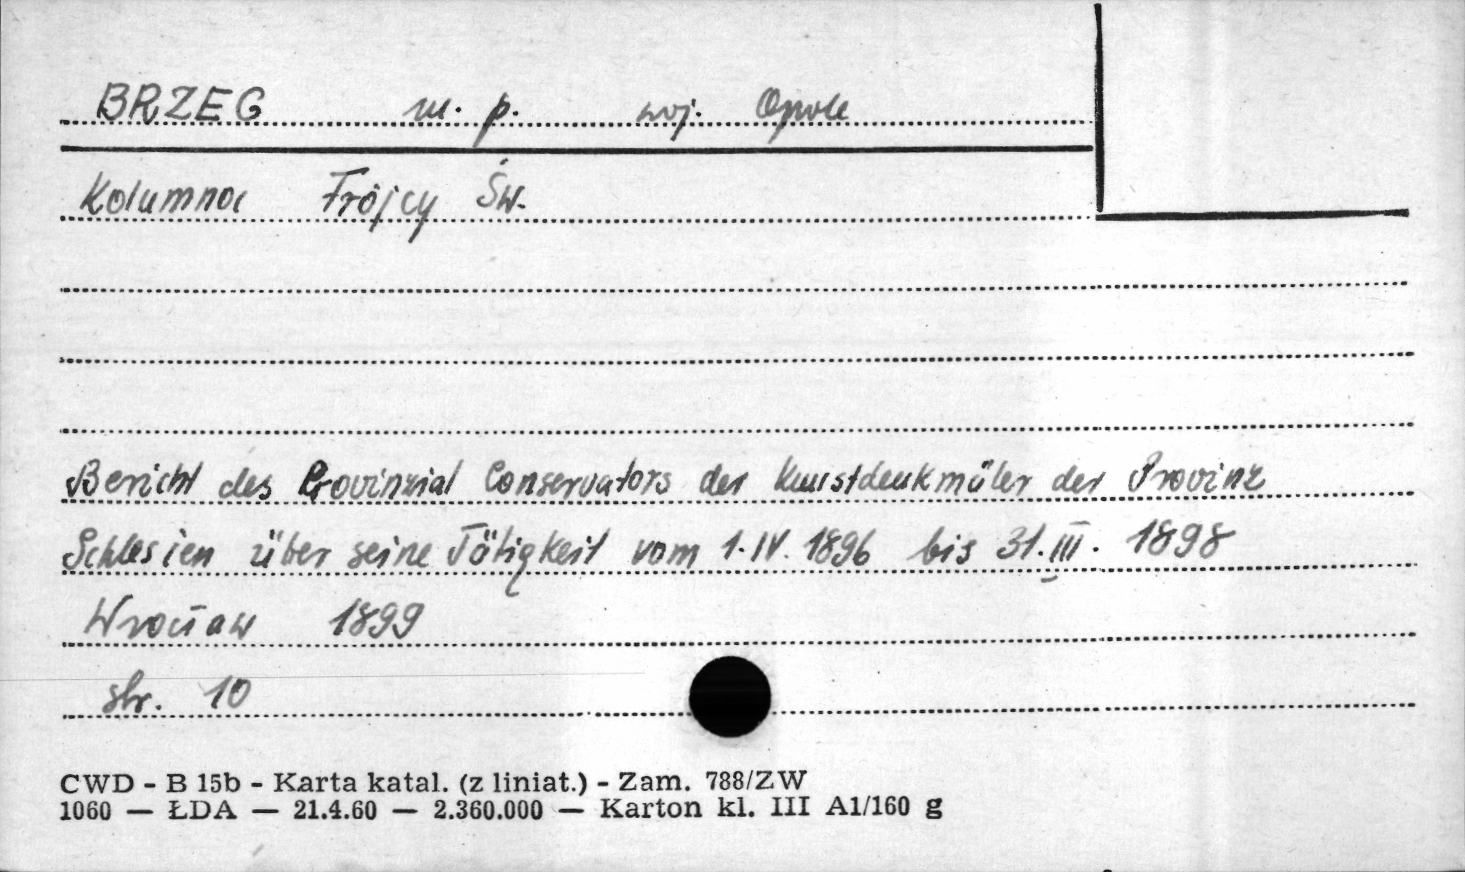 BRZEG m. p. woj. Opole
Kolumna Trójcy Św.
Bericht des Provinzial Conservators der Kunstdenkmäler der Provinz
Schlesien über seine Tätigkeit vom 1.IV.1896 bis 31.III.1898
Wrocław 1899
str. 10
CWD - B 15b - Karta katal. (z liniat.) - Zam. 788/ZW
1060 — ŁDA — 21.4.60 — 2.360.000 — Karton kl. III A1/160 g